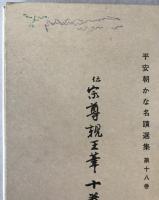 平安朝かな名蹟選集 第十八巻
伝宗尊親王筆 十巻